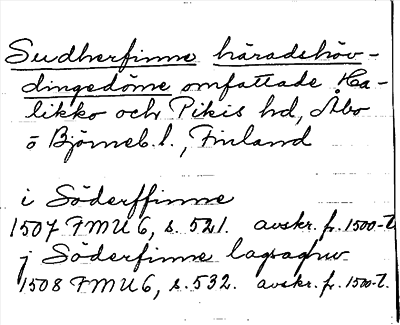 Sudherfinne häradshöv-
dingedöme omfattade Ha-
likko och Pikis hd, Åbo
o Björneb. l., Finland
i Söderffinne
1507 FMU 6, s. 521. avskr. fr. 1500-t.
j Söderfinne lagsaghw
1508 FMU 6, s. 532. avskr. fr. 1500-t.